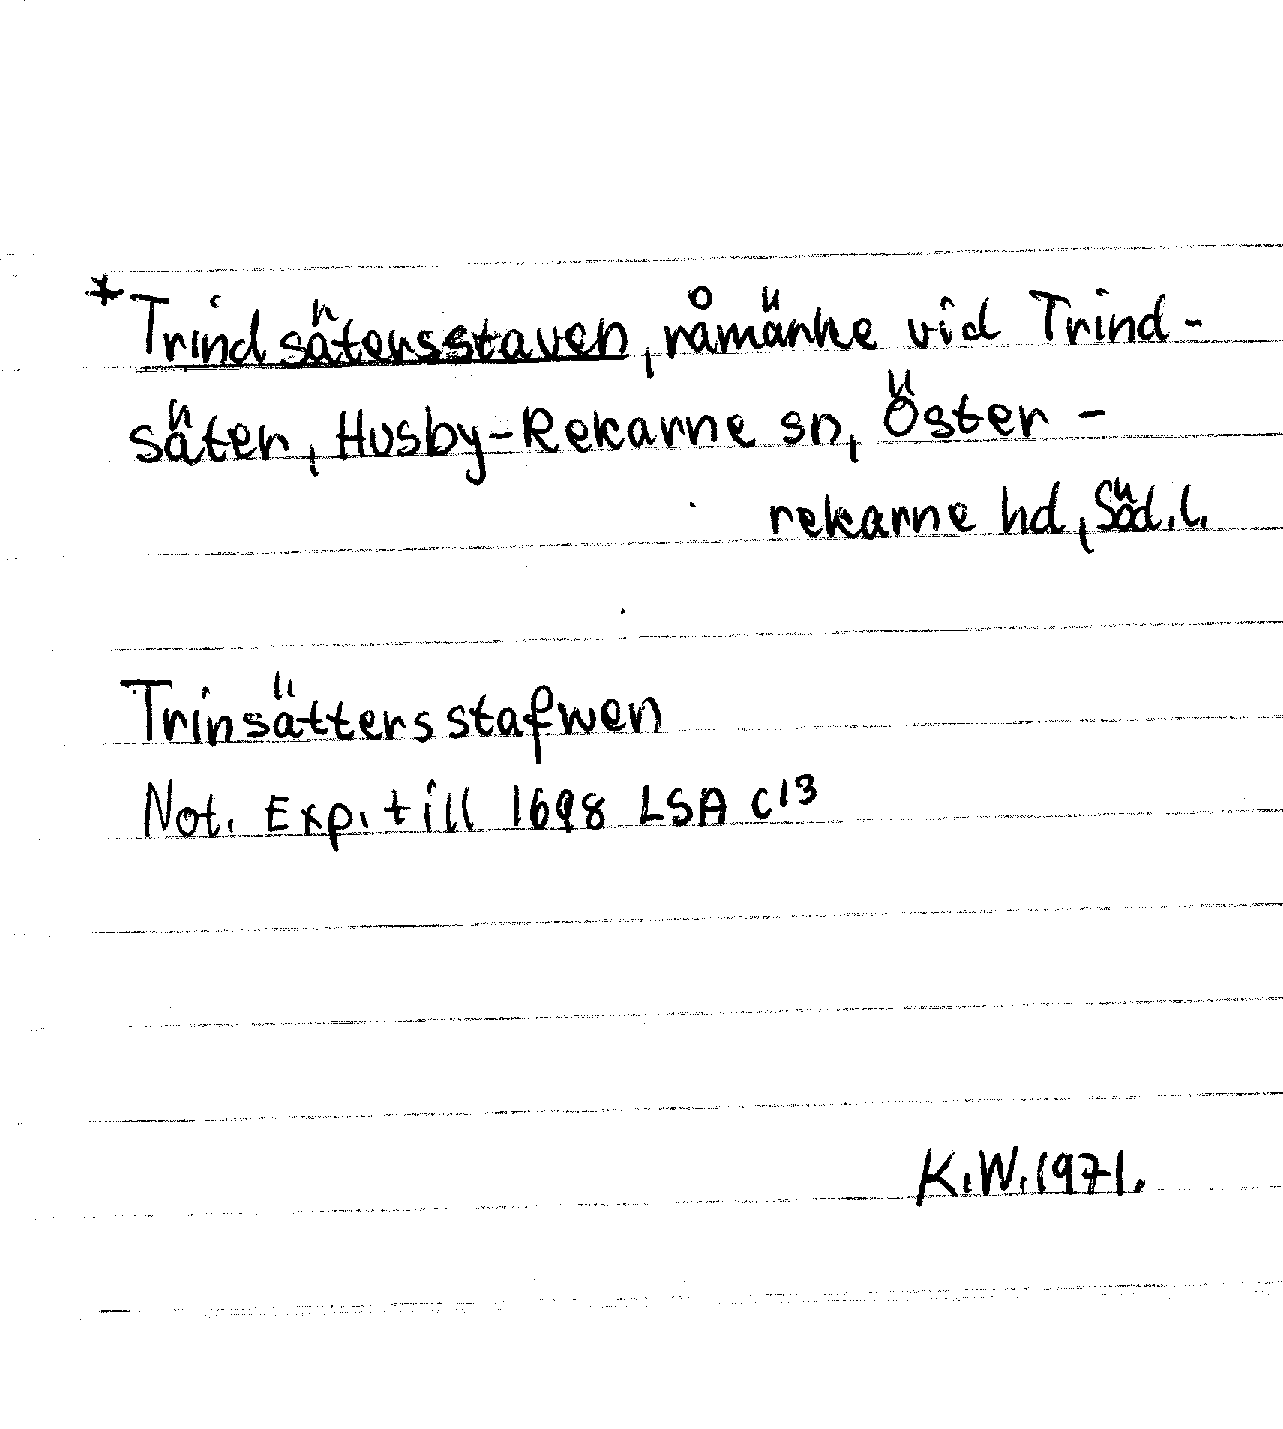 *Trindsätersstaven, råmärke vid Trind-
säter, Husby-Rekarne sn, Öster-
rekarne hd, Söd.l.
Trinsättersstafwen
Not. Exp. till 1698 LSA C13
K.W.1971.